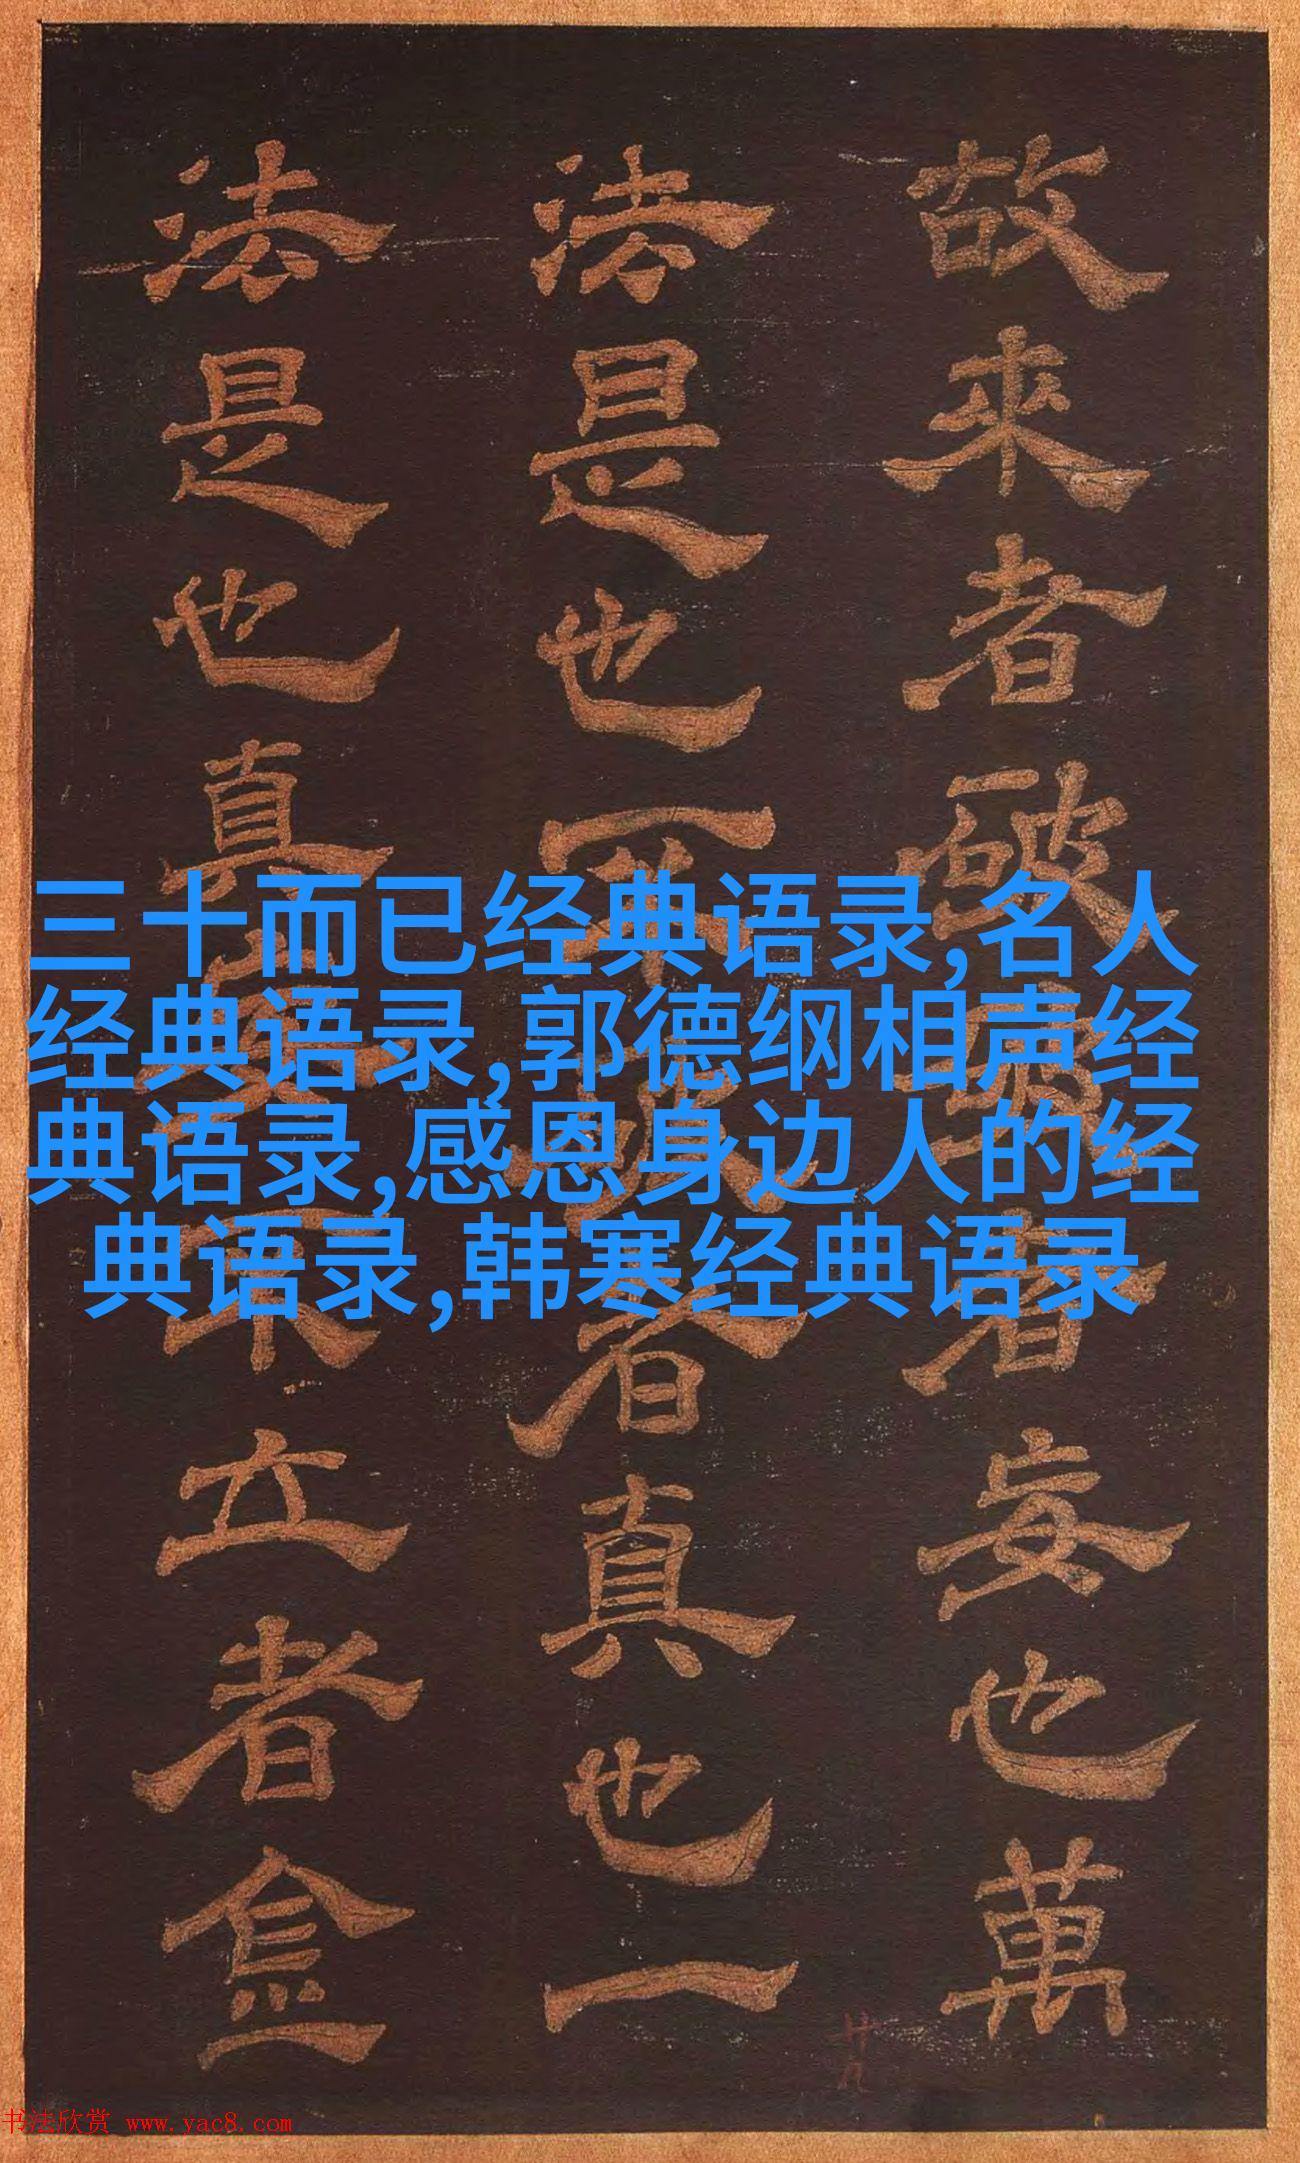 故來者破
者妄也萬
法是也
者真也一
法是也真
不立者
三十而已经典语录,名人
经典语录,郭德纲相声经
典语录,感恩身边人的经
典语录,韩寒经典语录
书法欣赏 www.yac8.com